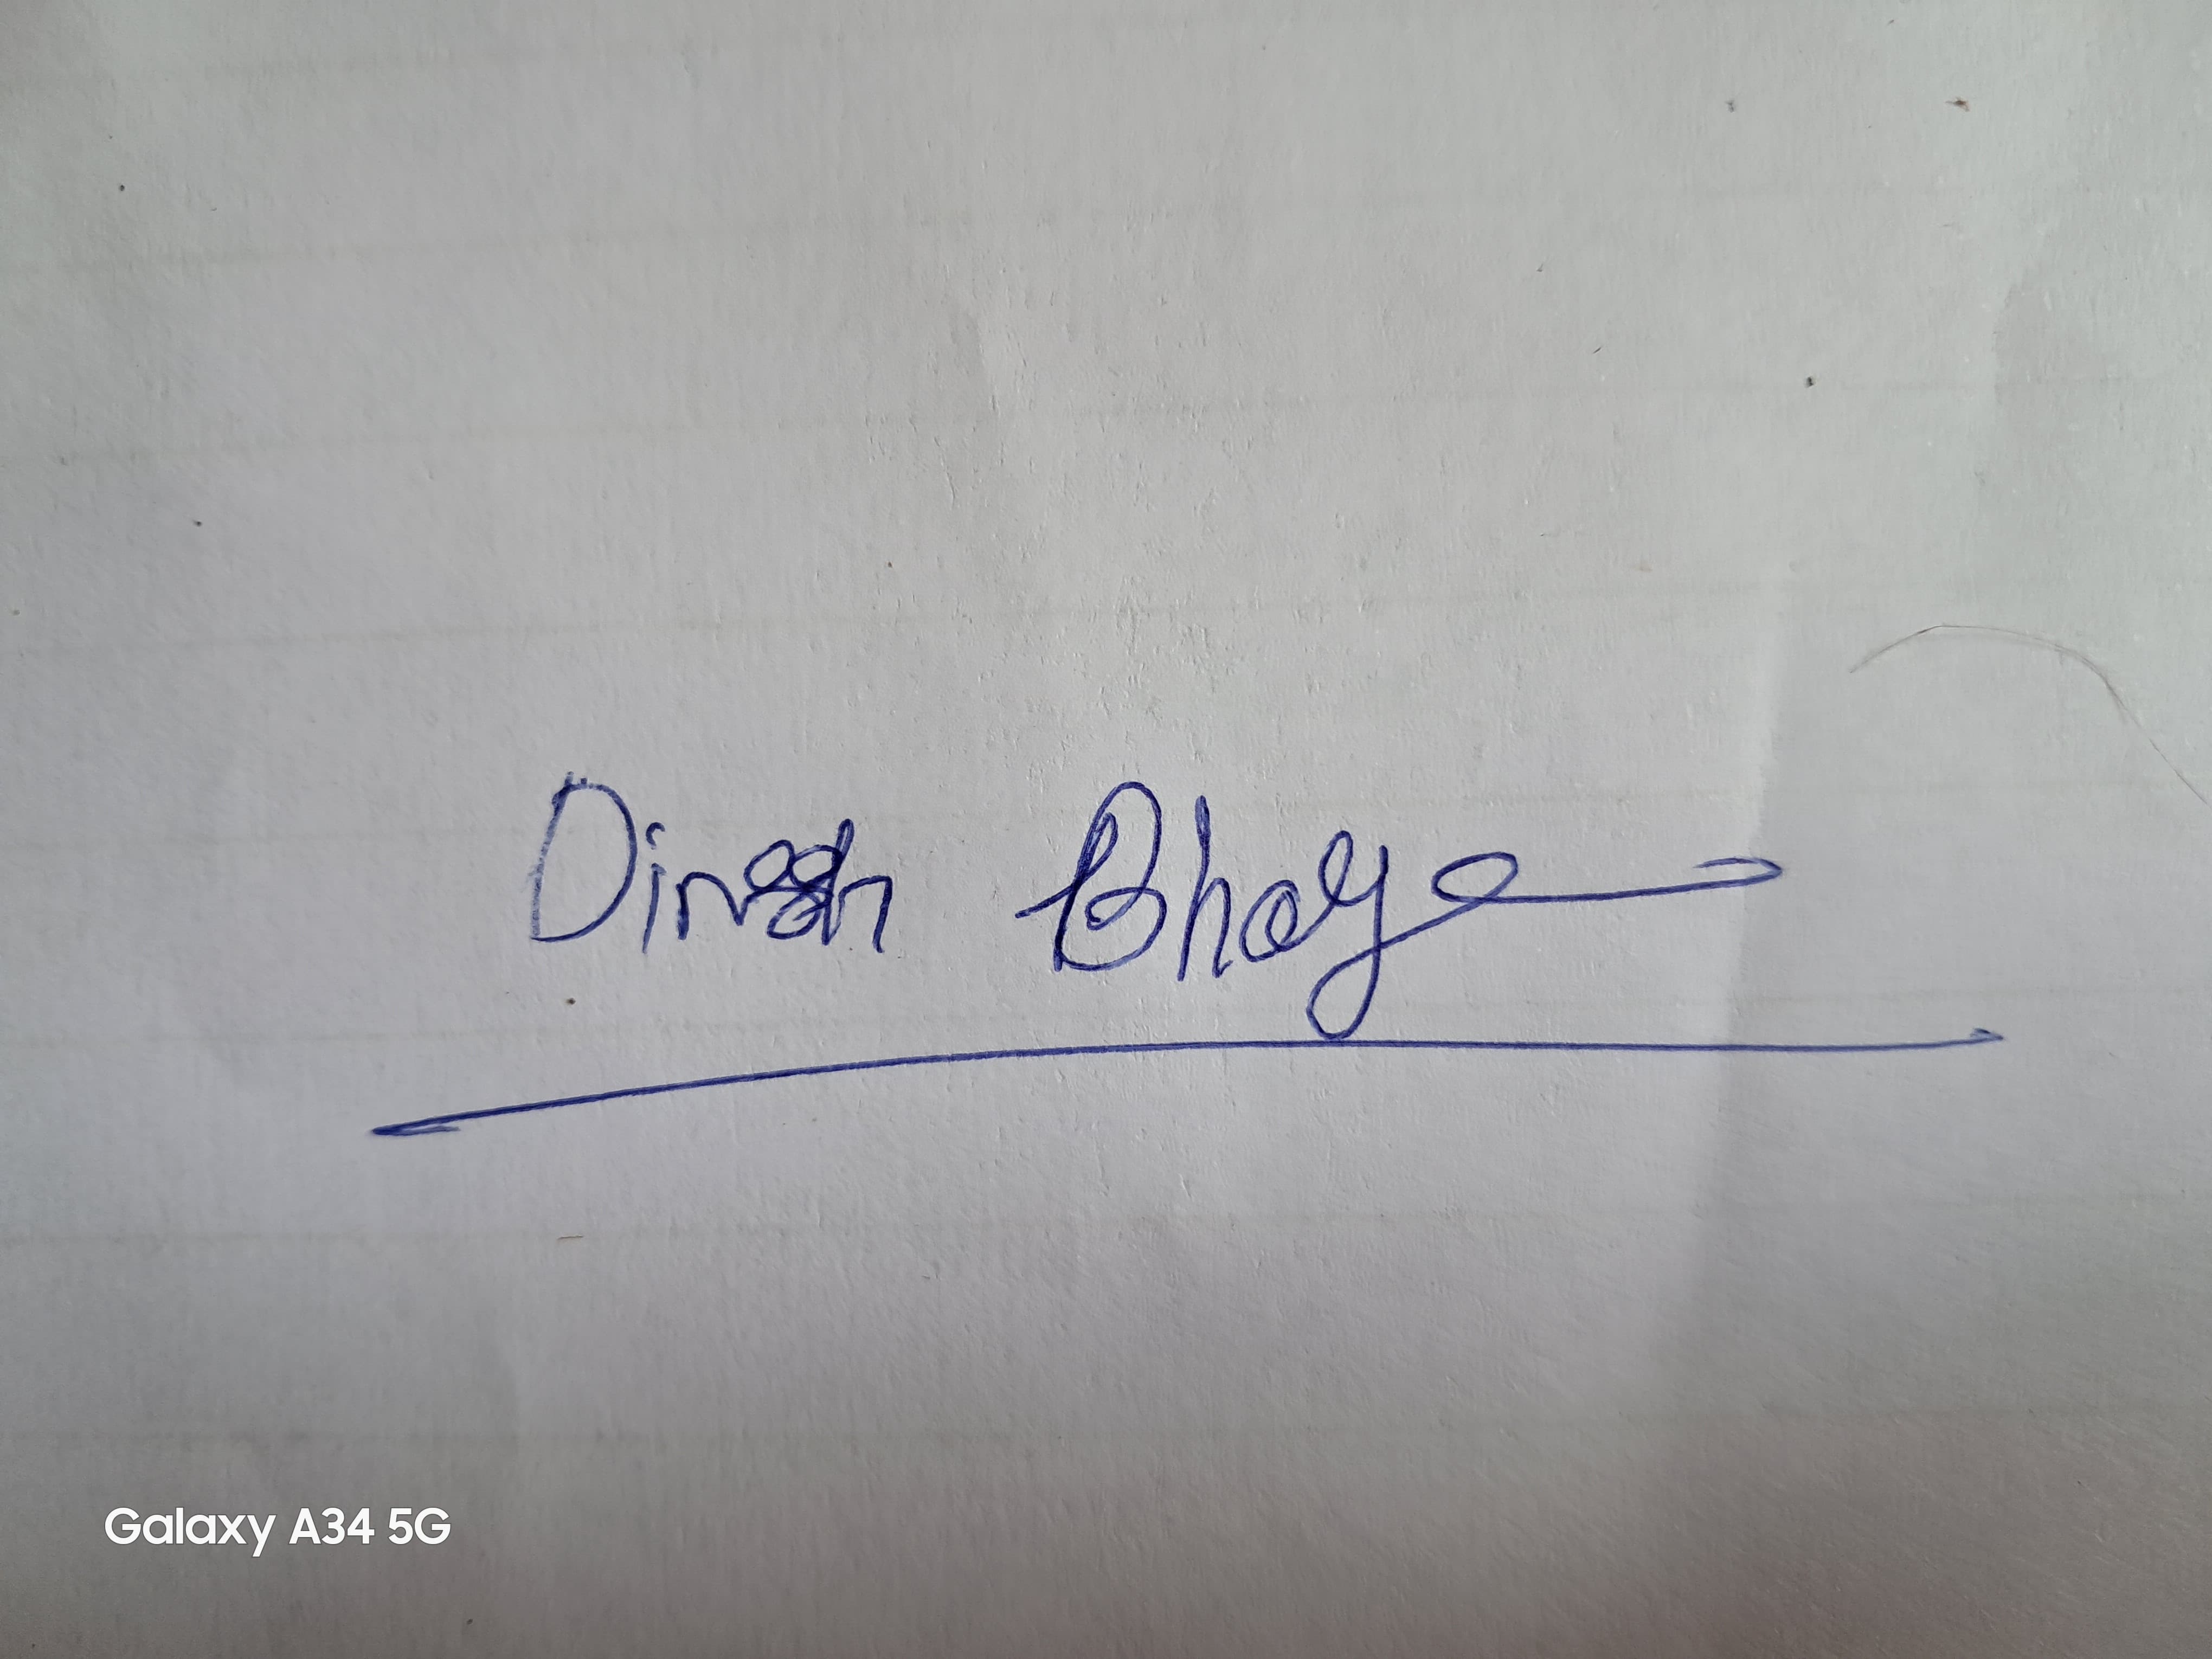 Dinesh Bhoye
Galaxy A34 5G